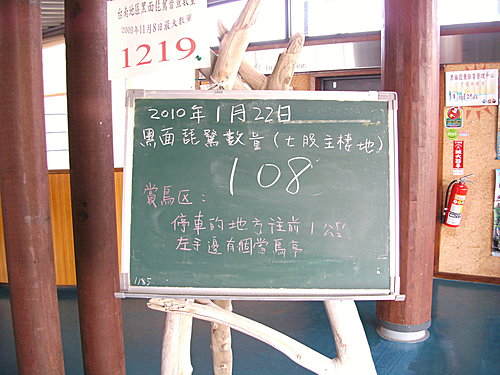 台南地區黑面琵鷺普查數量
2009年11月8日最大數量
1219
2010年1月22日
黑面琵鷺數量(七股主棲地)
108
賞鳥区:
停車的地方往前1公里
左手邊有個賞鳥亭
1185
滅火器